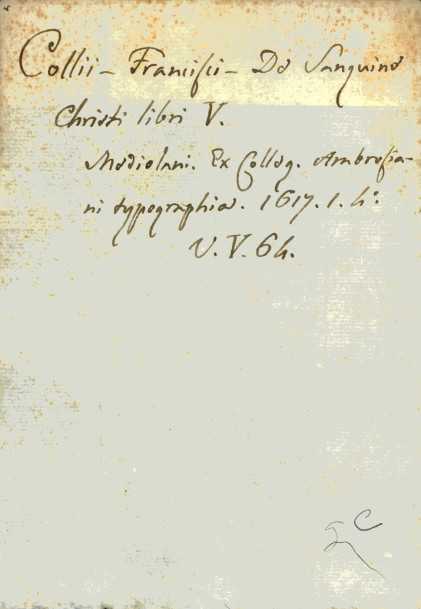 Collii – Francisci – De Sanguine
Christi libri V.
Mediolani. Ex Colleg. Ambrosia-
ni typographia. 1617. 1. 4°.
V. V. 64.
C